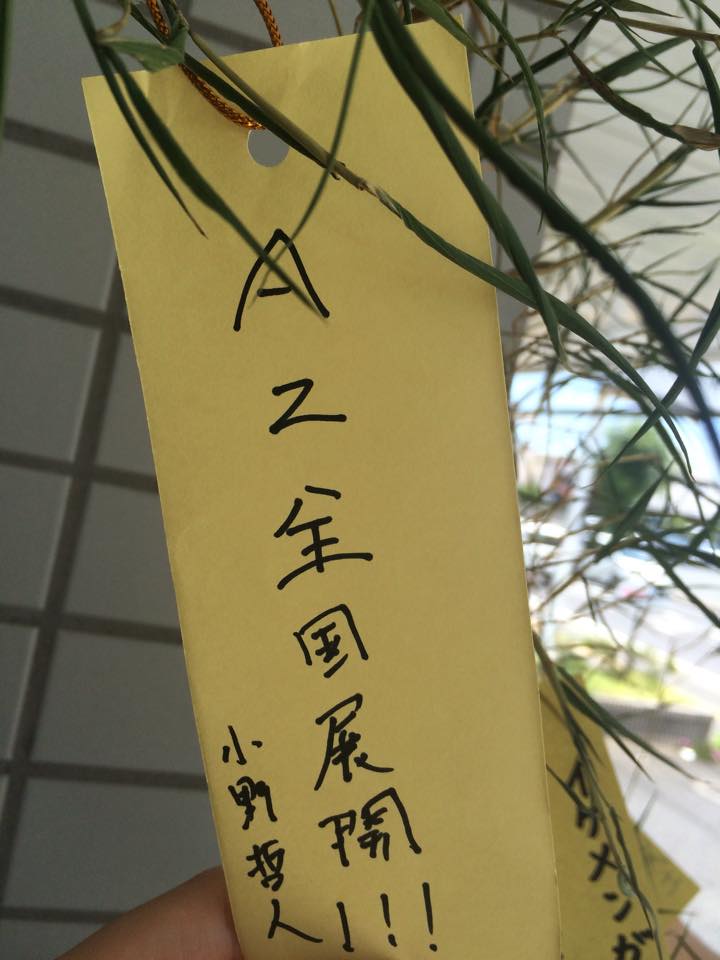 AZ全国展開!!!
小野哲人
イケメンが